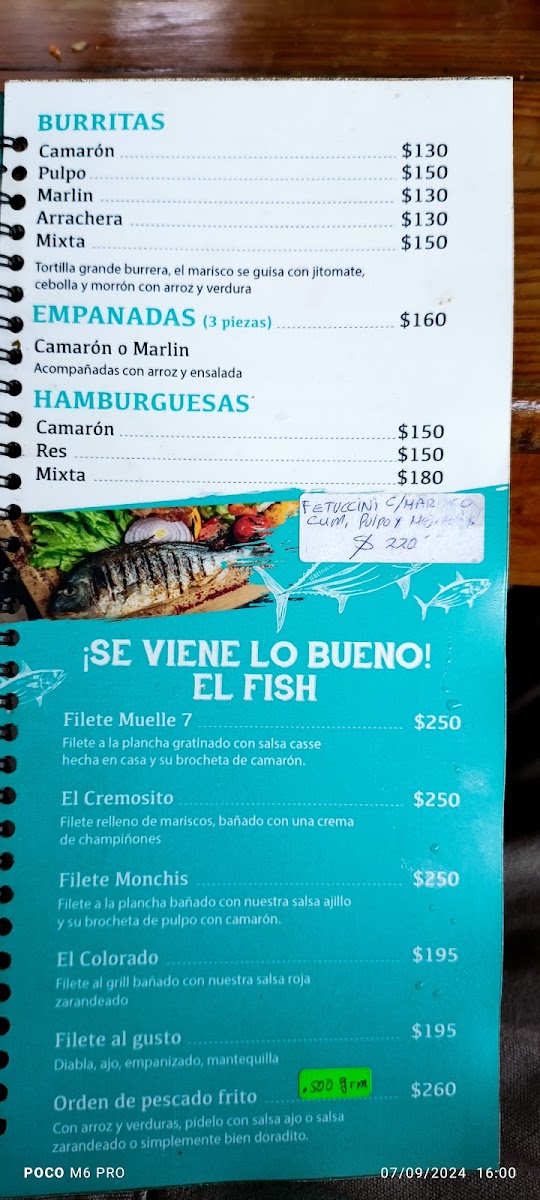 BURRITAS
Camarón $130
Pulpo $150
Marlin $130
Arrachera $130
Mixta $150
Tortilla grande burrera, el marisco se guisa con jitomate,
cebolla y morrón con arroz y verdura
EMPANADAS (3 piezas) $160
Camarón o Marlin
Acompañadas con arroz y ensalada
HAMBURGUESAS
Camarón $150
Res $150
Mixta $180
FETUCCINI C/
Cum, Pulpo y
$ 220
¡SE VIENE LO BUENO!
EL FISH
Filete Muelle 7 $250
Filete a la plancha gratinado con salsa casse
hecha en casa y su brocheta de camarón.
El Cremosito $250
Filete relleno de mariscos, bañado con una crema
de champiñones
Filete Monchis $250
Filete a la plancha bañado con nuestra salsa ajillo
y su brocheta de pulpo con camarón.
El Colorado $195
Filete al grill bañado con nuestra salsa roja
zarandeado
Filete al gusto $195
Diabla, ajo, empanizado, mantequilla
.500 grm
Orden de pescado frito $260
Con arroz y verduras, pídelo con salsa ajo o salsa
zarandeado o simplemente bien doradito.
POCO M6 PRO
07/09/2024 16:00